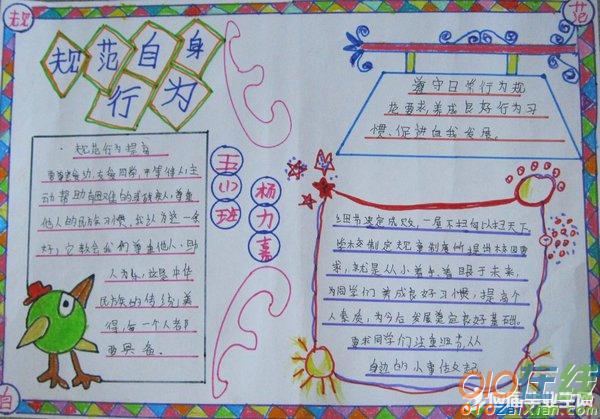 规
范
规范自身
行为
遵守日常行为规
范要求,养成良好行为习
惯,促进自我发展。
·规范行为提高
友爱同学,平等待人;主
动帮助有困难的或残疾人,尊重
他人的民族习惯。我认为这一条
好,它教会我们尊重他人、助
人为乐,这是中华
民族的传统美
德,每一个人都
要具备。
五小班
杨力嘉
细节决定成败,一屋不扫何以扫天下
学校制定规章制度所提出校园要
求,就是从小着手,着眼于未来,
为同学们养成良好习惯,提高个
人素质,为今后发展奠定良好基础。
要求同学们注重细节,从
身边的小事做起
自
910在线